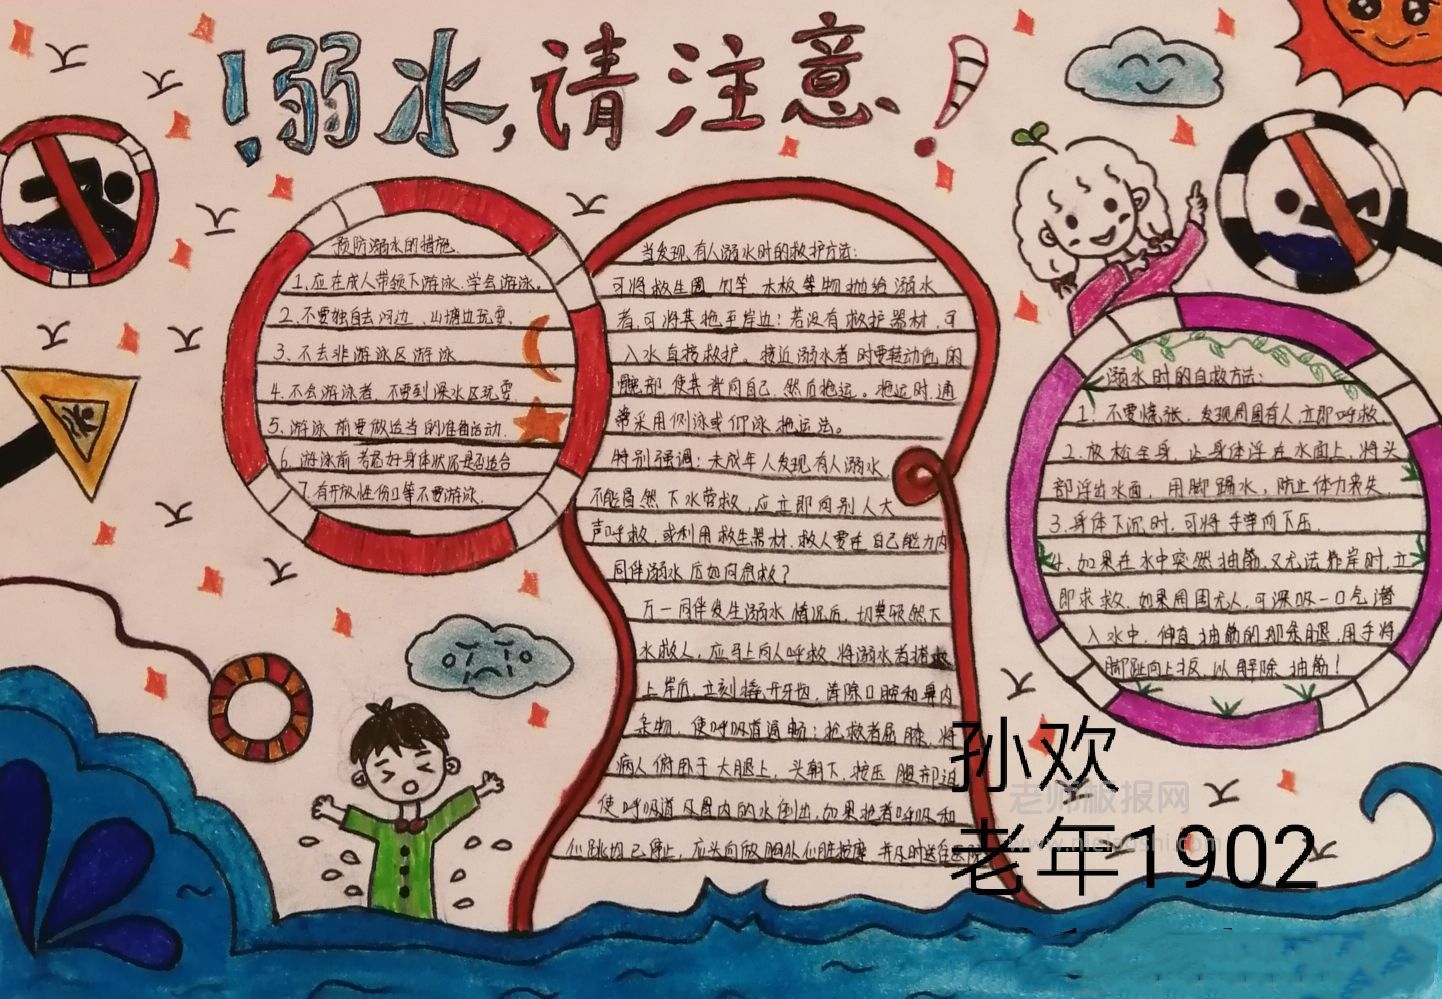 !溺水,请注意!
预防溺水的措施.
1.应在成人带领下游泳.学会游泳.
2.不要独自去河边、山塘边玩耍.
3.不去非游泳区游泳
4.不会游泳者,不要到深水区玩耍
5.游泳前要做适当的准备活动.
6.游泳前考虑好身体状况是否适合
7.有开放性伤口等不要游泳.
当发现有人溺水时的救护方法:
可将救生圈、竹竿、木板等物抛给溺水
者,可将其拖至岸边;若没有救护器材,可
入水直接救护。接近溺水者时要转动他的
髋部,使其背向自己,然后拖运。拖运时,通
常采用侧泳或仰泳拖运法。
特别强调:未成年人发现有人溺水
不能冒然下水营救,应立即向别人大
声呼救,或利用救生器材.救人要在自己能力内
同伴溺水后如何急救?
万一同伴发生溺水情况后,切莫顿然下
水救人,应马上向人呼救.将溺水者捞救
上岸后,立刻撬开牙齿,清除口腔和鼻内
杂物,使呼吸道通畅;抢救者屈膝,将
病人俯卧于大腿上,头朝下,按压腹部迫
使呼吸道及胃内的水倒出,如果抢者呼吸和
心跳均已停止,应头向放胸外心脏按摩,并及时送往医院
溺水时的自救方法:
1.不要慌张,发现周围有人,立即呼救
2.放松全身,让身体浮在水面上,将头
部浮出水面,用脚踢水,防止体力丧失
3.身体下沉时,可将手掌向下压.
4.如果在水中突然抽筋,又无法靠岸时,立
即求救.如果周围无人,可深吸一口气潜
入水中,伸直抽筋的那条腿,用手将
脚趾向上扳,以解除抽筋!
孙欢
老师板报网
老年1902